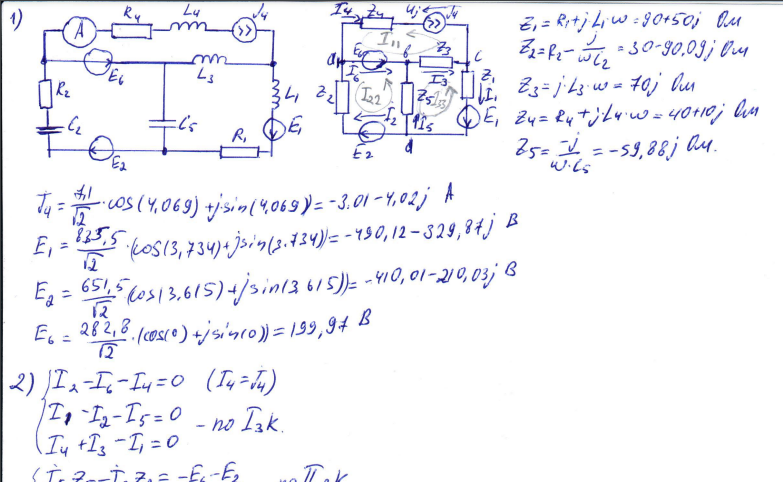 1)
A R4 L4 J4
E6 L3
R2 L1
C2 C5 E1
E2 R1
I4 Z4 J4
I11
a E6 b Z3 c
I6 I3 Z1
Z2 I22 Z5 I33 I1
I2 I5 E1
E2 d
Z1 = R1 + j L1·w = 90+50j Ом
Z2 = R2 - j/wC2 = 30-90.09j Ом
Z3 = j·L3·w = 70j Ом
Z4 = R4 + jL4·w = 40+10j Ом
Z5 = -j/w·C5 = -59,88j Ом.
J4 = 7,1/√2 · cos(4,069)+jsin(4,069)) = -3.01-4,02j А
E1 = 835,5/√2 ·(cos(3,734)+jsin(3.734)) = -490,12-329,87j В
E2 = 651,5/√2 (cos(3,615)+jsin(3,615)) = -410,01-210,03j В
E6 = 282,8/√2 ·(cos(0)+jsin(0)) = 199,97 В
2) { I2 - I6 - I4 = 0 (I4 = J4)
I1 - I2 - I5 = 0 - по I ЗК.
I4 + I3 - I1 = 0